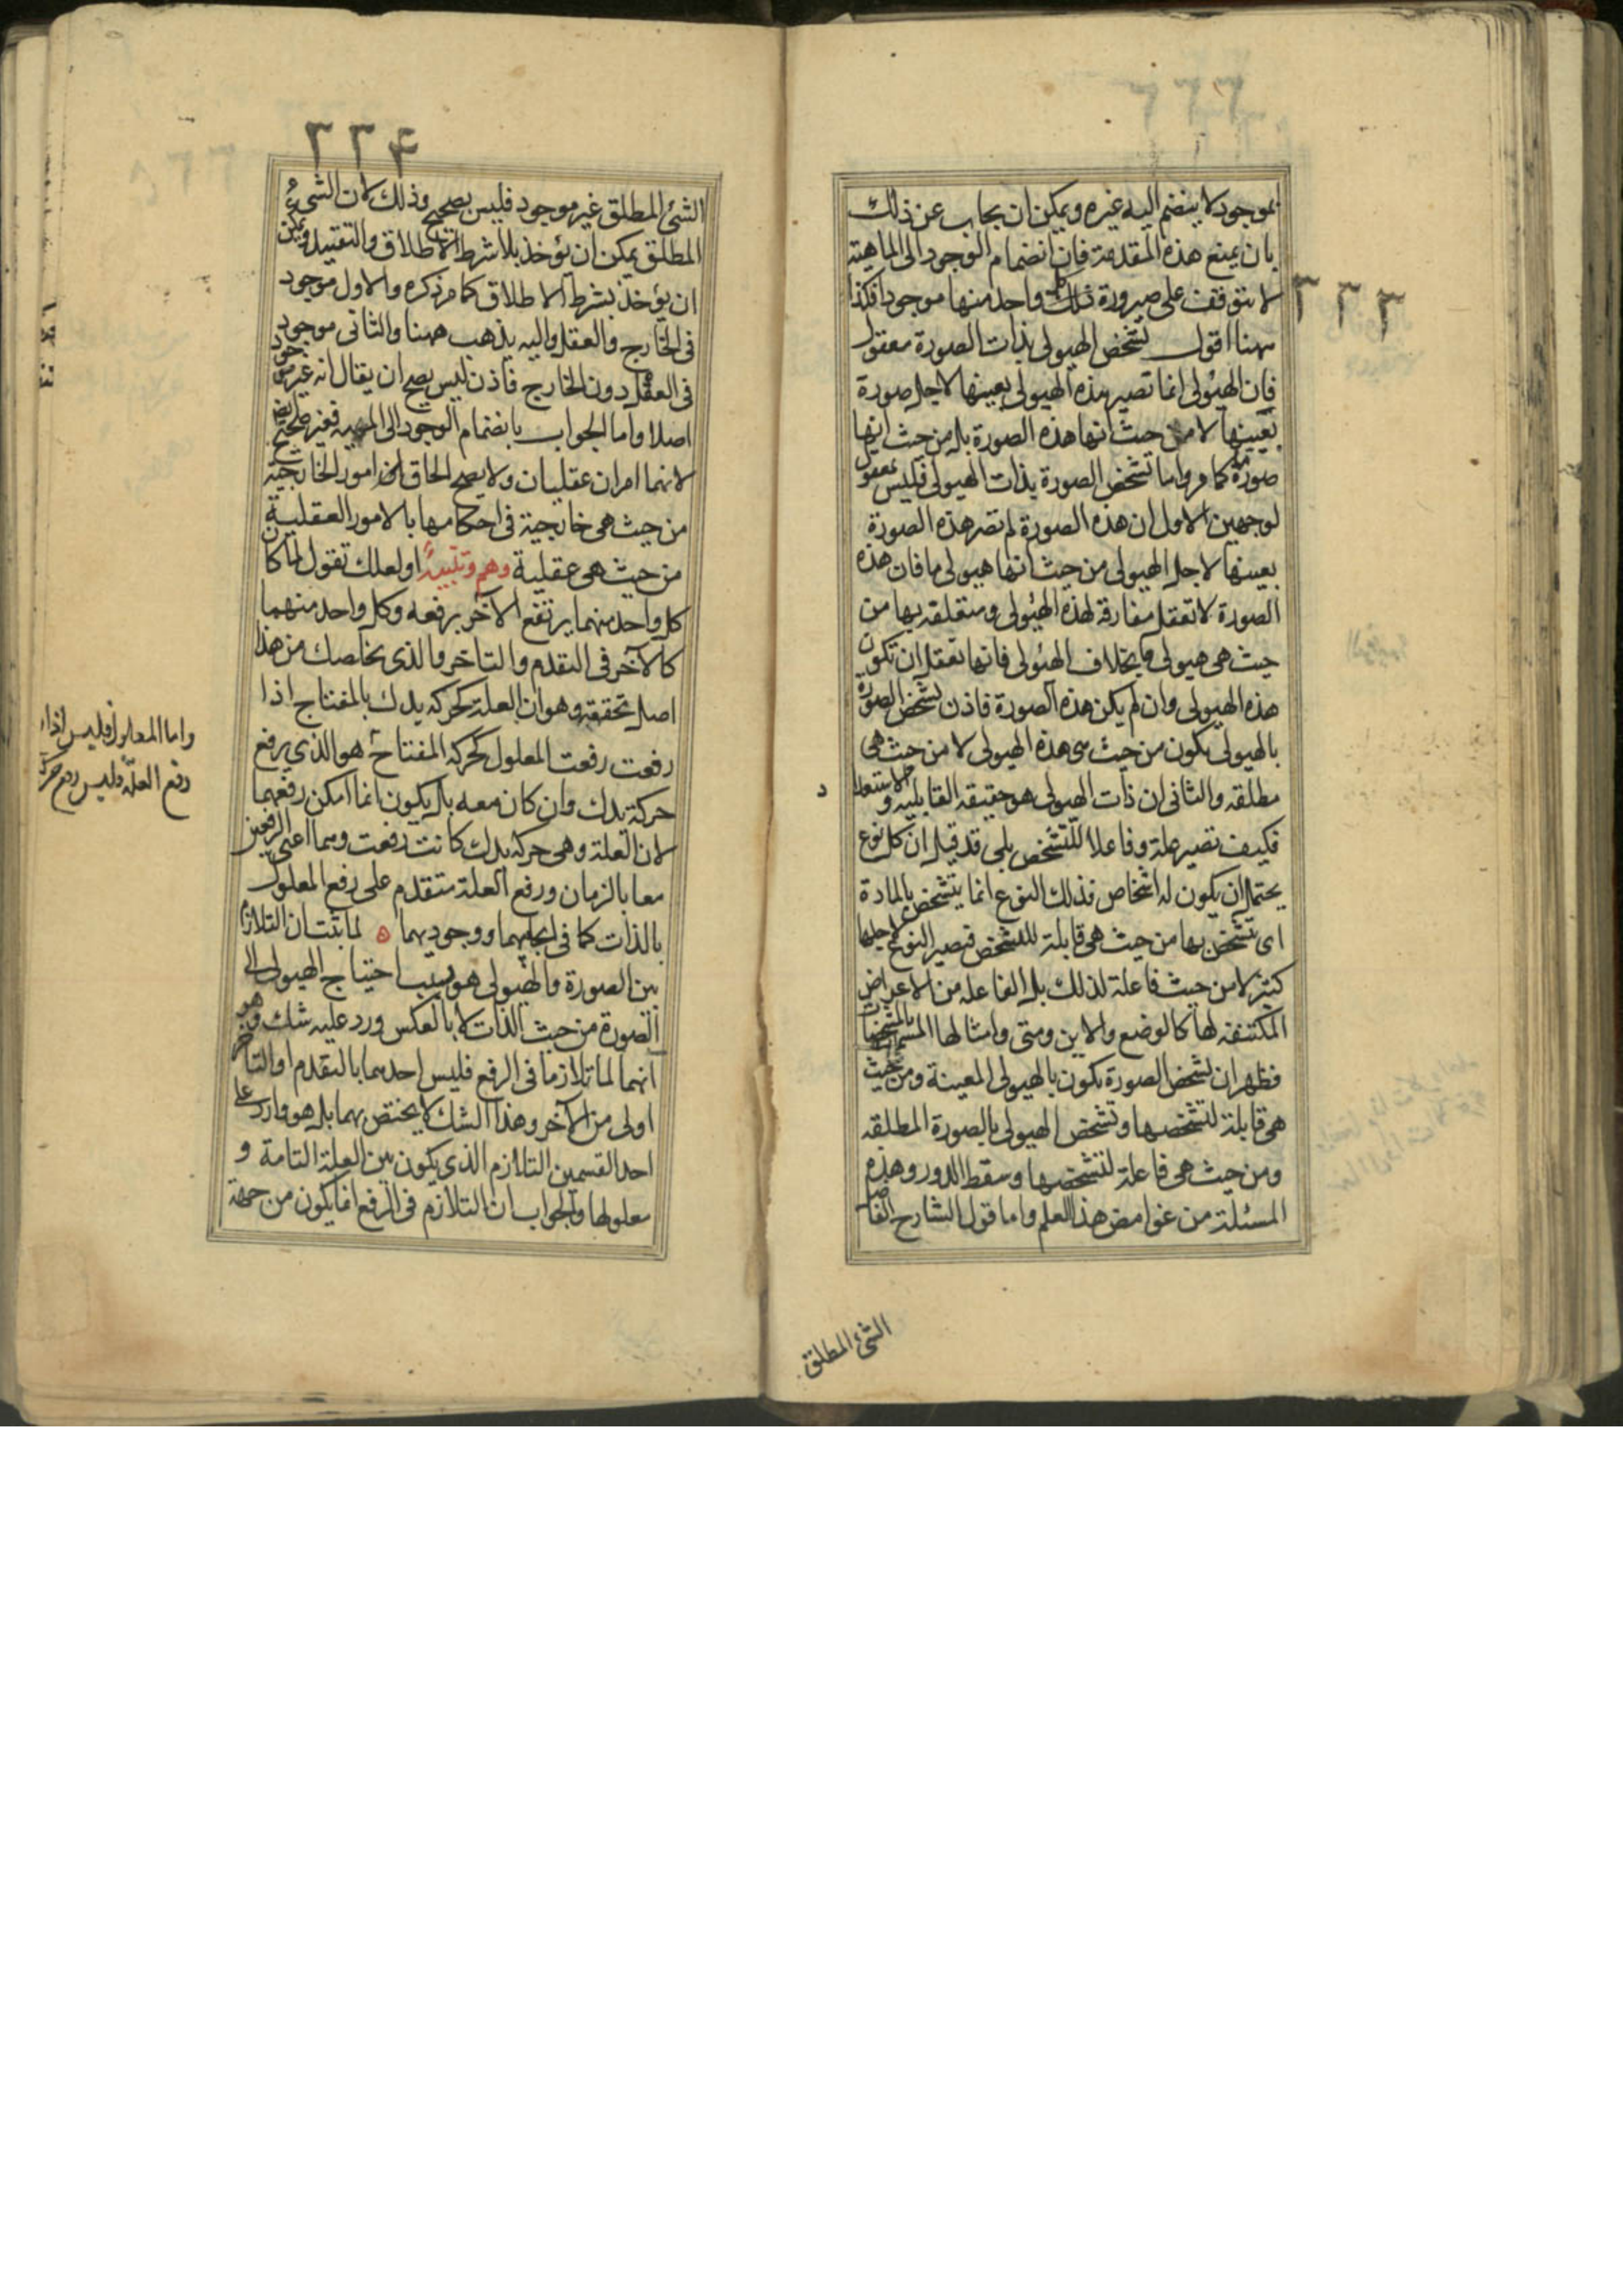 ٣٣٣
بموجود لا ينضم اليه غيره ويمكن ان يجاب عن ذلك
بان يمنع هذه المقدمة فان انضمام الوجود الى الماهية
لا يتوقف على صيرورة كل واحد منها موجودا فكذا
ههنا اقول تشخص الهيولى بذات الصورة معقول
فان الهيولى انما تصير هذه الهيولى بعينها لاجل صورة
بعينها لا من حيث انها هذه الصورة بل من حيث انها
صورة ما كما مر واما تشخص الصورة بذات الهيولى فليس بمعقول
لوجهين الاول ان هذه الصورة لم تصر هذه الصورة
بعينها لاجل الهيولى من حيث انها هيولى ما فان هذه
الصورة لا تعقل مفارقة لهذه الهيولى ومتعلقه بها من
حيث هى هيولى ما بخلاف الهيولى فانها تعقل ان تكون
هذه الهيولى وان لم يكن هذه الصورة فاذن تشخص الصورة
بالهيولى يكون من حيث هى هذه الهيولى لا من حيث هى
مطلقه والثانى ان ذات الهيولى هو حقيقه القابليه والاستعداد
فكيف تصير علة وفاعلا للتشخص بلى قد قيل ان كل نوع
يحتمل ان يكون له اشخاص فذلك النوع انما يتشخص بالمادة
اى تشخص بها من حيث هى قابلة للتشخص فيصير النوع لاجلها
كثيرا لا من حيث فاعلة لذلك بل الفاعله من الاعراض
المكتنفه لها كالوضع والاين ومتى وامثالها المسمات بالمشخصات
فظهر ان تشخص الصورة يكون بالهيولى المعينة ومن حيث
هى قابلة لتشخصها وتشخص الهيولى بالصورة المطلقه
ومن حيث هى فاعلة لتشخصها وسقط الدور وهذه
المسئلة من غوامض هذا العلم واما قول الشارح الفاضل
الشئ المطلق
٣٣۴
الشئ المطلق غير موجود فليس بصحيح وذلك لان الشئ
المطلق يمكن ان يؤخذ بلا شرط الاطلاق والتقييد ويمكن
ان يؤخذ بشرط الاطلاق كما مر ذكره والاول موجود
فى الخارج والعقل واليه يذهب ههنا والثانى موجود
فى العقل دون الخارج فاذن ليس يصح ان يقال انه غير موجود
اصلا واما الجواب بانضمام الوجود الى المهيه فغير صحيح
لانهما امران عقليان ولا يصح الحاق الامور الخارجية
من حيث هى خارجية فى احكامها بالامور العقلية
من حيث هى عقلية وهم وتنبيه او لعلك تقول لما كان
كل واحد منهما يرتفع الآخر برفعه وكل واحد منهما
كالآخر فى التقدم والتاخر والذى يخلصك من هذا
اصل تحققه وهو ان العلة كحركه يدك بالمفتاح اذا
رفعت رفعت المعلول كحركه المفتاح هو الذى يرفع
حركة يدك وان كان معه بل يكون انما امكن رفعهما
لان العلة وهى حركه يدك كانت رفعت وهما اعنى الرفعين
معا بالزمان ورفع العلة متقدم على رفع المعلول
بالذات كما فى ايجابهما ووجودهما ه لما ثبت ان التلازم
بين الصورة والهيولى هو بسبب احتياج الهيولى الى
الصورة من حيث الذات لا بالعكس ورد عليه شك وهو
انهما لما تلازما فى الرفع فليس احدهما بالتقدم او التاخر
اولى من الآخر وهذا الشك لا يختص بهما بل هو وارد على
احد القسمين التلازم الذى يكون بين العلة التامة و
معلولها والجواب ان التلازم فى الرفع انما يكون من جهة
واما المعلول فليس اذا
رفع العلة فليس رفع حركة